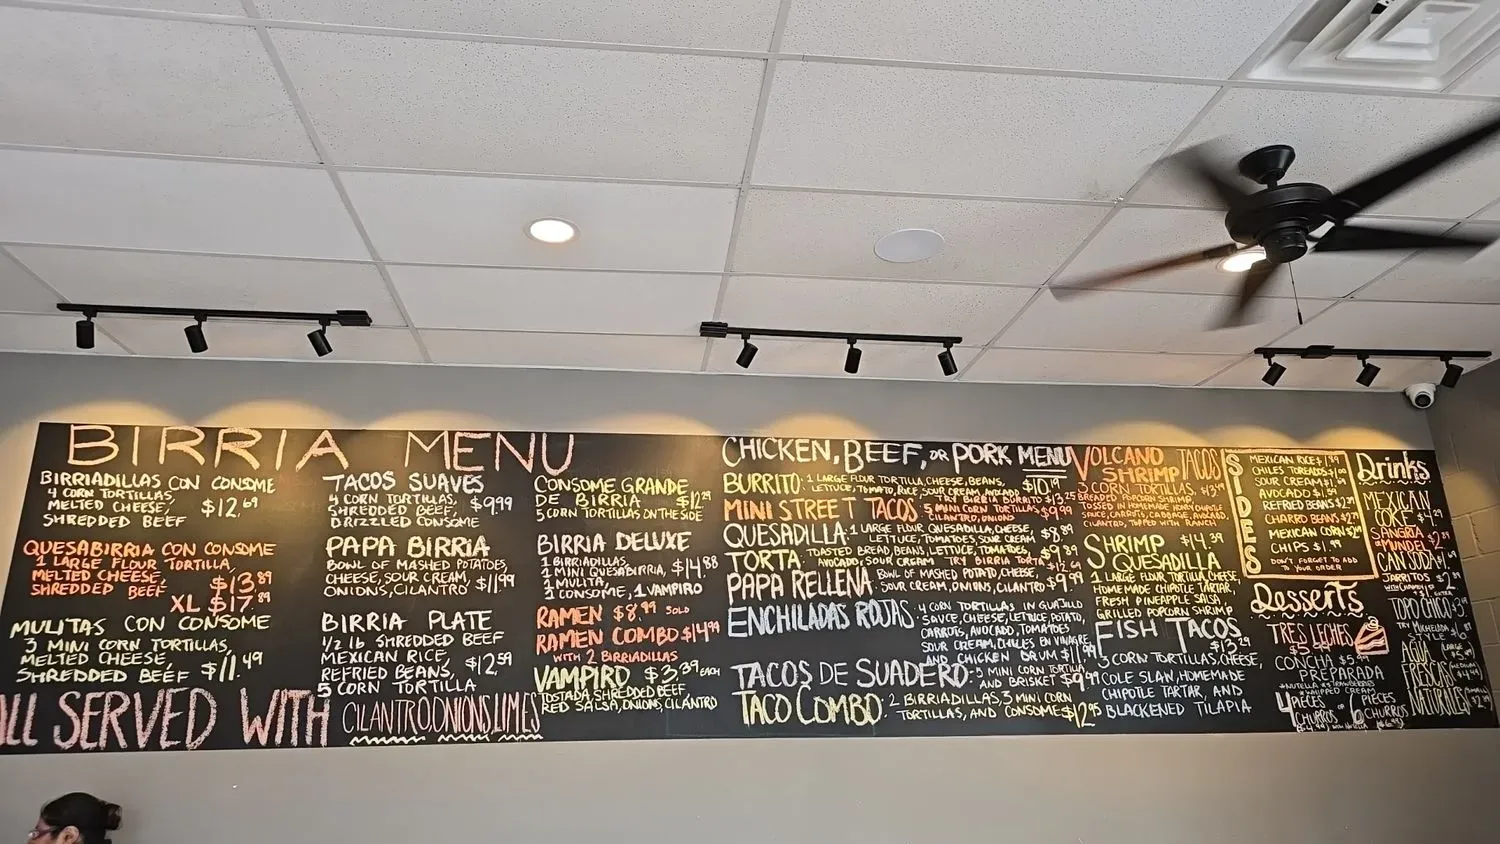 BIRRIA MENU
BIRRIADILLAS CON CONSOME
4 CORN TORTILLAS,
MELTED CHEESE,
SHREDDED BEEF
$12.69
QUESABIRRIA CON CONSOME
1 LARGE FLOUR TORTILLA,
MELTED CHEESE,
SHREDDED BEEF $13.89
XL $17.89
MULITAS CON CONSOME
3 MINI CORN TORTILLAS,
MELTED CHEESE,
SHREDDED BEEF $11.49
TACOS SUAVES
4 CORN TORTILLAS,
SHREDDED BEEF, $9.99
DRIZZLED CONSOME
PAPA BIRRIA
BOWL OF MASHED POTATOES,
CHEESE, SOUR CREAM,
ONIONS, CILANTRO $11.99
BIRRIA PLATE
1/2 lb SHREDDED BEEF
MEXICAN RICE,
REFRIED BEANS, $12.59
5 CORN TORTILLA
CONSOME GRANDE
DE BIRRIA $12.29
5 CORN TORTILLAS ON THE SIDE
BIRRIA DELUXE
1 BIRRIADILLAS,
1 MINI QUESABIRRIA, $14.88
1 MULITA,
1 CONSOME, 1 VAMPIRO
RAMEN $8.99 SOLO
RAMEN COMBO $14.99
WITH 2 BIRRIADILLAS
VAMPIRO $3.39 EACH
TOSTADA, SHREDDED BEEF,
RED SALSA, ONIONS, CILANTRO
ALL SERVED WITH CILANTRO, ONIONS, LIMES
CHICKEN, BEEF, OR PORK MENU
BURRITO: 1 LARGE FLOUR TORTILLA, CHEESE, BEANS,
LETTUCE, TOMATO, RICE, SOUR CREAM, AVOCADO $10.19
TRY BIRRIA BURRITO $13.25
MINI STREET TACOS: 5 MINI CORN TORTILLAS $9.99
CILANTRO, ONIONS
QUESADILLA: 1 LARGE FLOUR QUESADILLA, CHEESE,
LETTUCE, TOMATOES, SOUR CREAM $8.89
TORTA: TOASTED BREAD, BEANS, LETTUCE, TOMATOES, $9.39
AVOCADO, SOUR CREAM TRY BIRRIA TORTA
PAPA RELLENA: BOWL OF MASHED POTATO, CHEESE,
SOUR CREAM, ONIONS, CILANTRO $9.99
ENCHILADAS ROJAS: 4 CORN TORTILLAS IN GUAJILLO
SAUCE, CHEESE, LETTUCE, POTATO,
CARROTS, AVOCADO, TOMATOES
SOUR CREAM, CHILES EN VINAGRE,
AND CHICKEN DRUM
TACOS DE SUADERO: 5 MINI CORN TORTILLA,
AND BRISKET $9.99
TACO COMBO: 2 BIRRIADILLAS, 3 MINI CORN
TORTILLAS, AND CONSOME $12.95
VOLCANO TACOS
SHRIMP
3 CORN TORTILLAS
BREADED POPCORN SHRIMP,
TOSSED IN HOMEMADE CHIPOTLE
SAUCE, CARROTS, CABBAGE, AVOCADO,
CILANTRO, TOPPED WITH RANCH
SHRIMP $14.39
QUESADILLA
1 LARGE FLOUR TORTILLA, CHEESE,
HOMEMADE CHIPOTLE TARTAR,
FRESH PINEAPPLE SALSA,
GRILLED POPCORN SHRIMP
FISH TACOS
$13.29
3 CORN TORTILLAS, CHEESE,
COLE SLAW, HOMEMADE
CHIPOTLE TARTAR, AND
BLACKENED TILAPIA
SIDES
MEXICAN RICE
CHILES TOREADOS
SOUR CREAM
AVOCADO
REFRIED BEANS
CHARRO BEANS
MEXICAN CORN
CHIPS $1.99
DON'T FORGET TO ADD
TO YOUR ORDER
DESSERTS
TRES LECHES
CONCHA
PREPARADA
NUTELLA, STRAWBERRIES
WHIPPED CREAM
4 PIECES CHURROS OR 6 PIECES CHURROS
Drinks
MEXICAN
COKE $4.29
SANGRIA
MUNDET
CAN SODA
JARRITOS
TOPO CHICO
TRY MICHELADA
STYLE
AGUA
FRESCAS
NATURALES